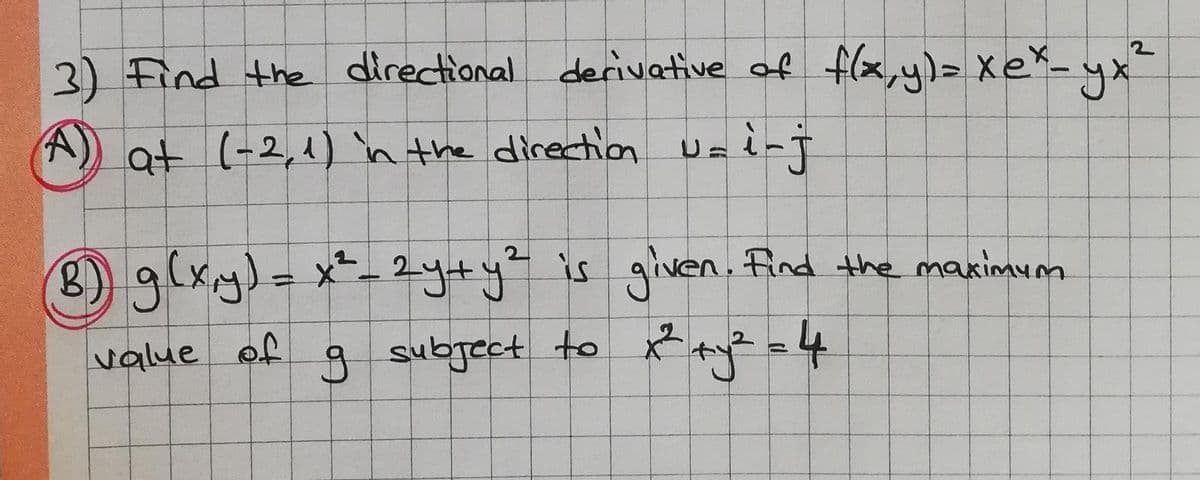 3) Find the directional derivative of f(x,y)= xeˣ- yx²
A) at (-2,1) in the direction u= i-j
B) g(x,y) = x²- 2y+y² is given. Find the maximum
value of g subject to x²+y² = 4